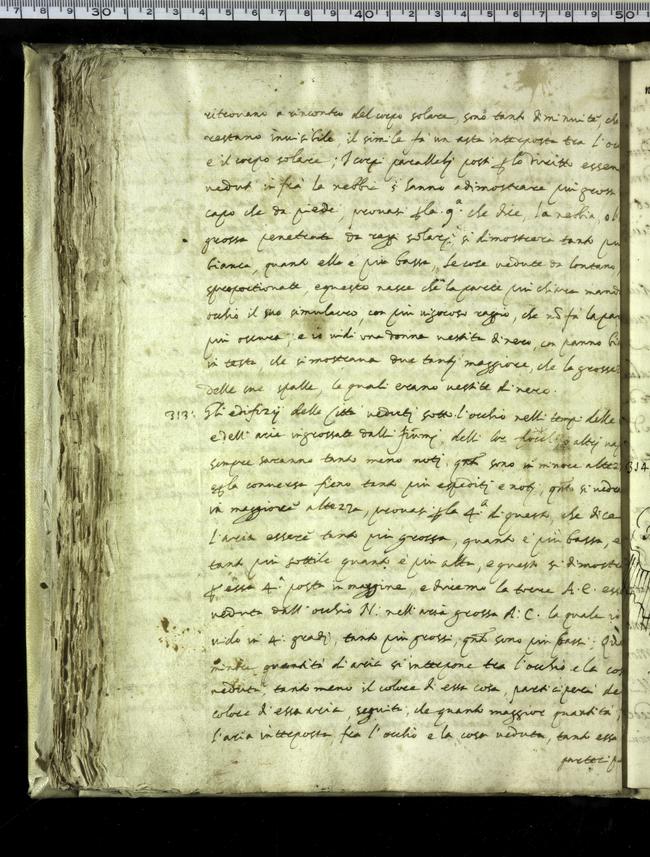 ritrovano a rincontro del corpo solare, sono tanto diminuite che
restano invisibile, il simile fà un asta interposta tra l'oc
e il corpo solare; I corpi paralleli posti p lo diritto essen
veduti infrà la nebbie si hanno adimostrare più grossi
capo che da piedi, provasi p la 9.ª che dice, la nebbia, o l
grossa penetrata da razzi solari, si dimostrerà tanto più
bianca, quanto ella è più bassa, Le cose vedute da lontano,
sproportionate, e questo nasce chè la parte più chiara manda
occhio il suo simulacro, con più vigoroso raggio, che nõ fà la par
più oscura; e io vidi una donna vestita di nero, con panno bi
in testa, che si mostrava due tanti maggiore, che la grosse
delle sue spalle, le quali erano vestite di nero.
313: Gli edifizij delle Città veduti sotto l'occhio nelli tempi delle
e dell'arie ingrossate dalli fummi, delli lor o altri vap
sempre saranno tanto meno noti, qnto sono in minore altez
p la conversa fieno tanto più espediti e noti, qnto si vedra
in maggiore altezza, provasi p la 4.ª di questo, che dice
l'aria essere tanto più grossa, quanto è più bassa, e
tanto più sottile quanto è più alta, e questo si dimostra
p essa 4.ª posta in maggine, e diremo la torre A.C. esse
veduta dall'occhio N. nell'aria grossa A.C. la quale si
vido in 4. gradi, tanto più grossi, qnto sono più bassi;
minore quantità di aria si interpone tra l'occhio e la cos
veduta, tanto meno il colore di essa cosa, participerà de
colore di essa aria, seguita, che quanto maggior quantità
l'aria interposta, fra l'occhio e la cosa veduta, tanto essa
partecip
314